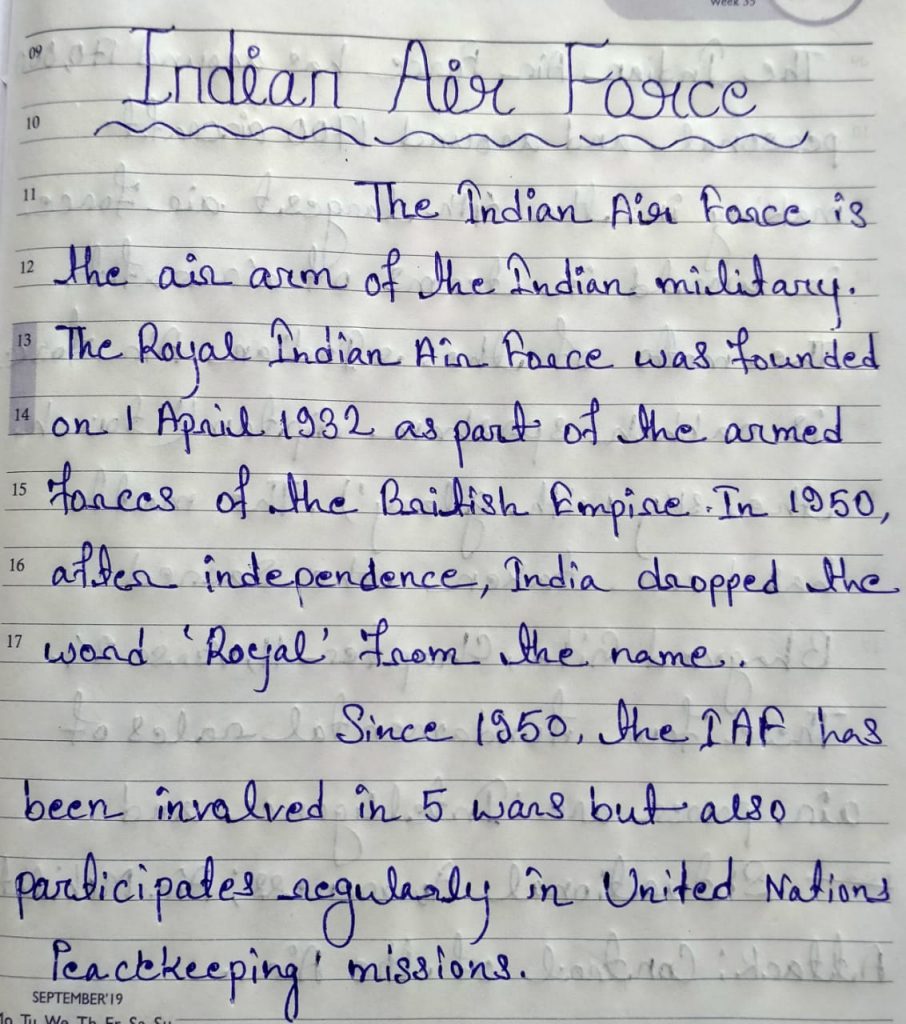 Week 35
09
Indian Air Force
10
11 The Indian Air Force is
12 the air arm of the Indian military.
13 The Royal Indian Air Force was founded
14 on 1 April 1932 as part of the armed
15 forces of the British Empire. In 1950,
16 after independence, India dropped the
17 word 'Royal' from the name.
Since 1950, the IAF has
been involved in 5 wars but also
participates regularly in United Nations
Peackkeeping' missions.
SEPTEMBER'19
Mo Tu We Th Fr Sa Su